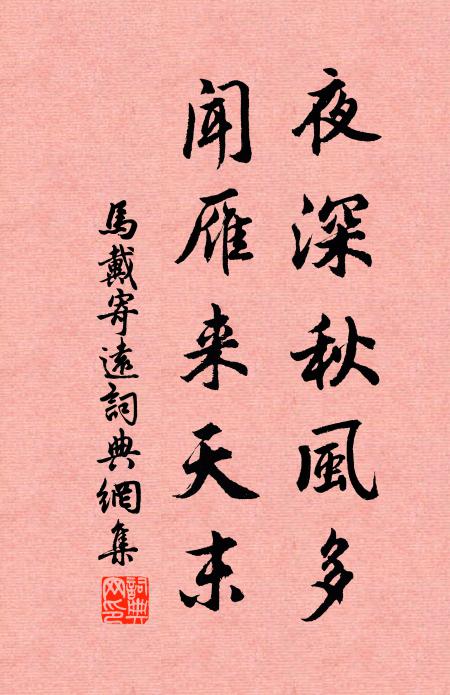 夜深秋風多
闻雁来天末
馬戴寄遠詞典網集
詞典网印